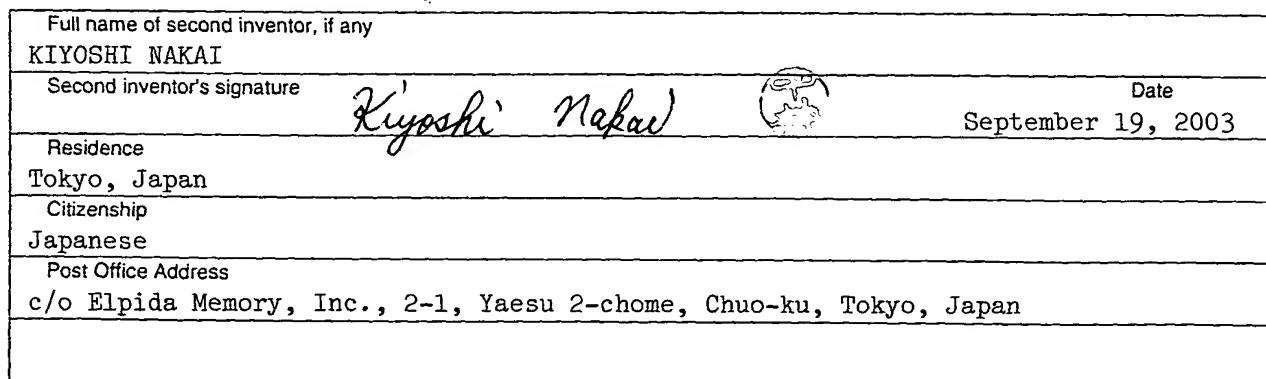 Full name of second inventor, if any
KIYOSHI NAKAI
Second inventor's signature Kiyoshi Nakai Date
September 19, 2003
Residence
Tokyo, Japan
Citizenship
Japanese
Post Office Address
c/o Elpida Memory, Inc., 2-1, Yaesu 2-chome, Chuo-ku, Tokyo, Japan